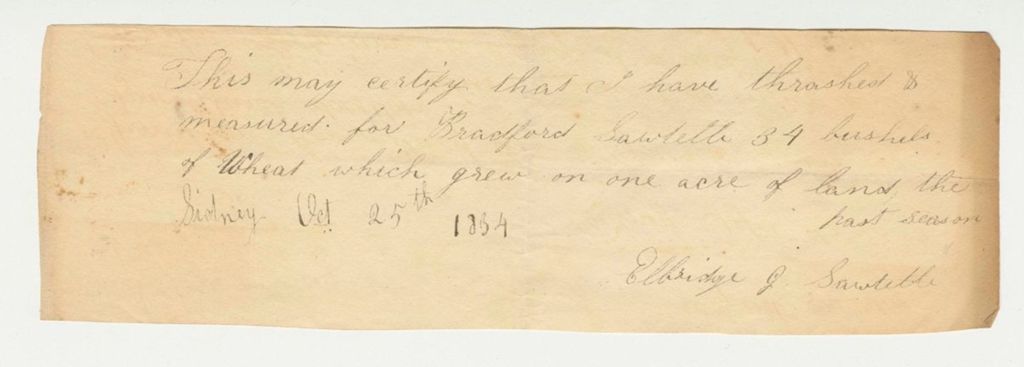 This may certify that I have thrashed &
measured for Bradford Sawtelle 34 bushels
of Wheat which grew on one acre of land, the
past season
Sidney Oct 25th 1834
Elbridge G Sawtelle